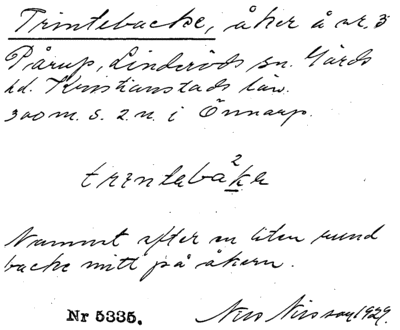 Trintebacke, åker å nr. 3
Pårup, Linderöds sn. Gärds
hd. Kristianstads län.
300 m. S. 2 n. i Önnarp.
trintebåke
2
Nammt efter en liten rund
backe mitt på åkern.
Nr 5335. Nils Nilsson 1929.